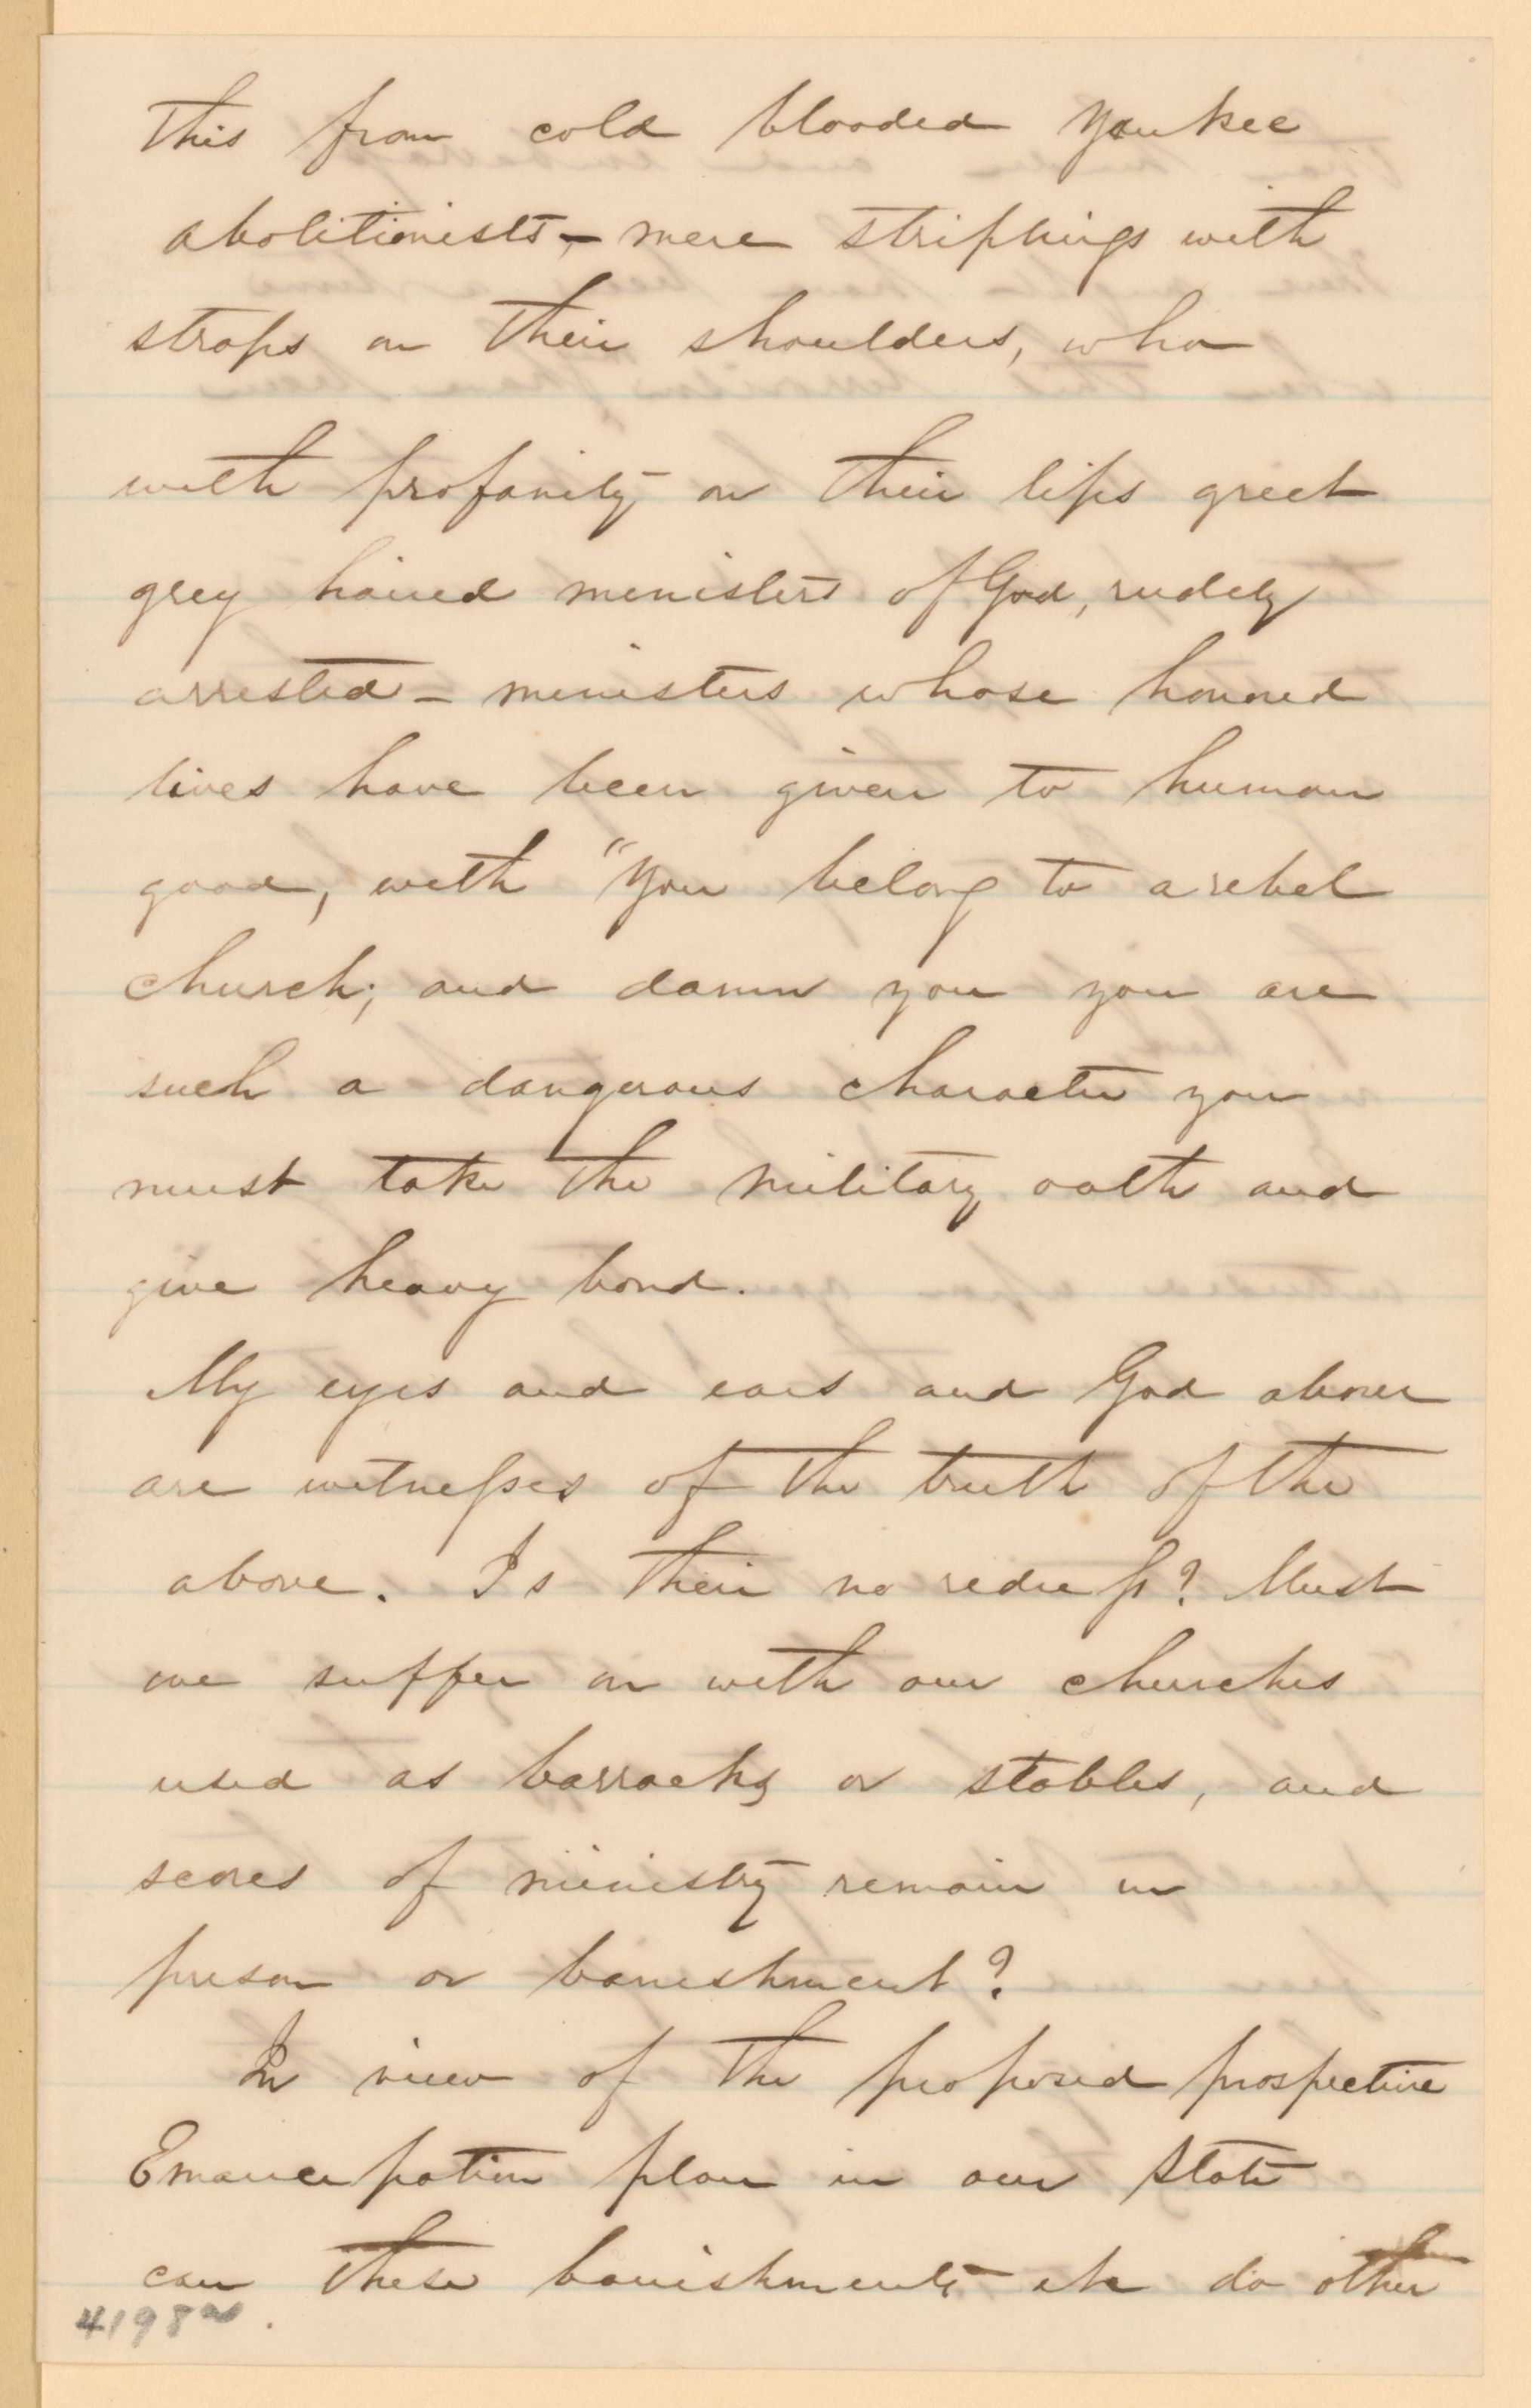 This from cold blooded Yankee
abolitionists, – mere striplings with
straps on their shoulders, who
with profanity on their lips greet
grey haired ministers of God, rudely
arrested – ministers whose honored
lives have been given to human
good, with "You belong to a rebel
church; and damn you you are
such a dangerous character you
must take the military oath and
give heavy bond.
My eyes and ears and God above
are witnesses of the truth of the
above. Is their no redress? Must
we suffer on with our churches
used as barracks or stables, and
scores of ministry remain in
prison or banishment?
In view of the proposed prospective
Emancipation plan in our State
can these banishments etc do other
4198